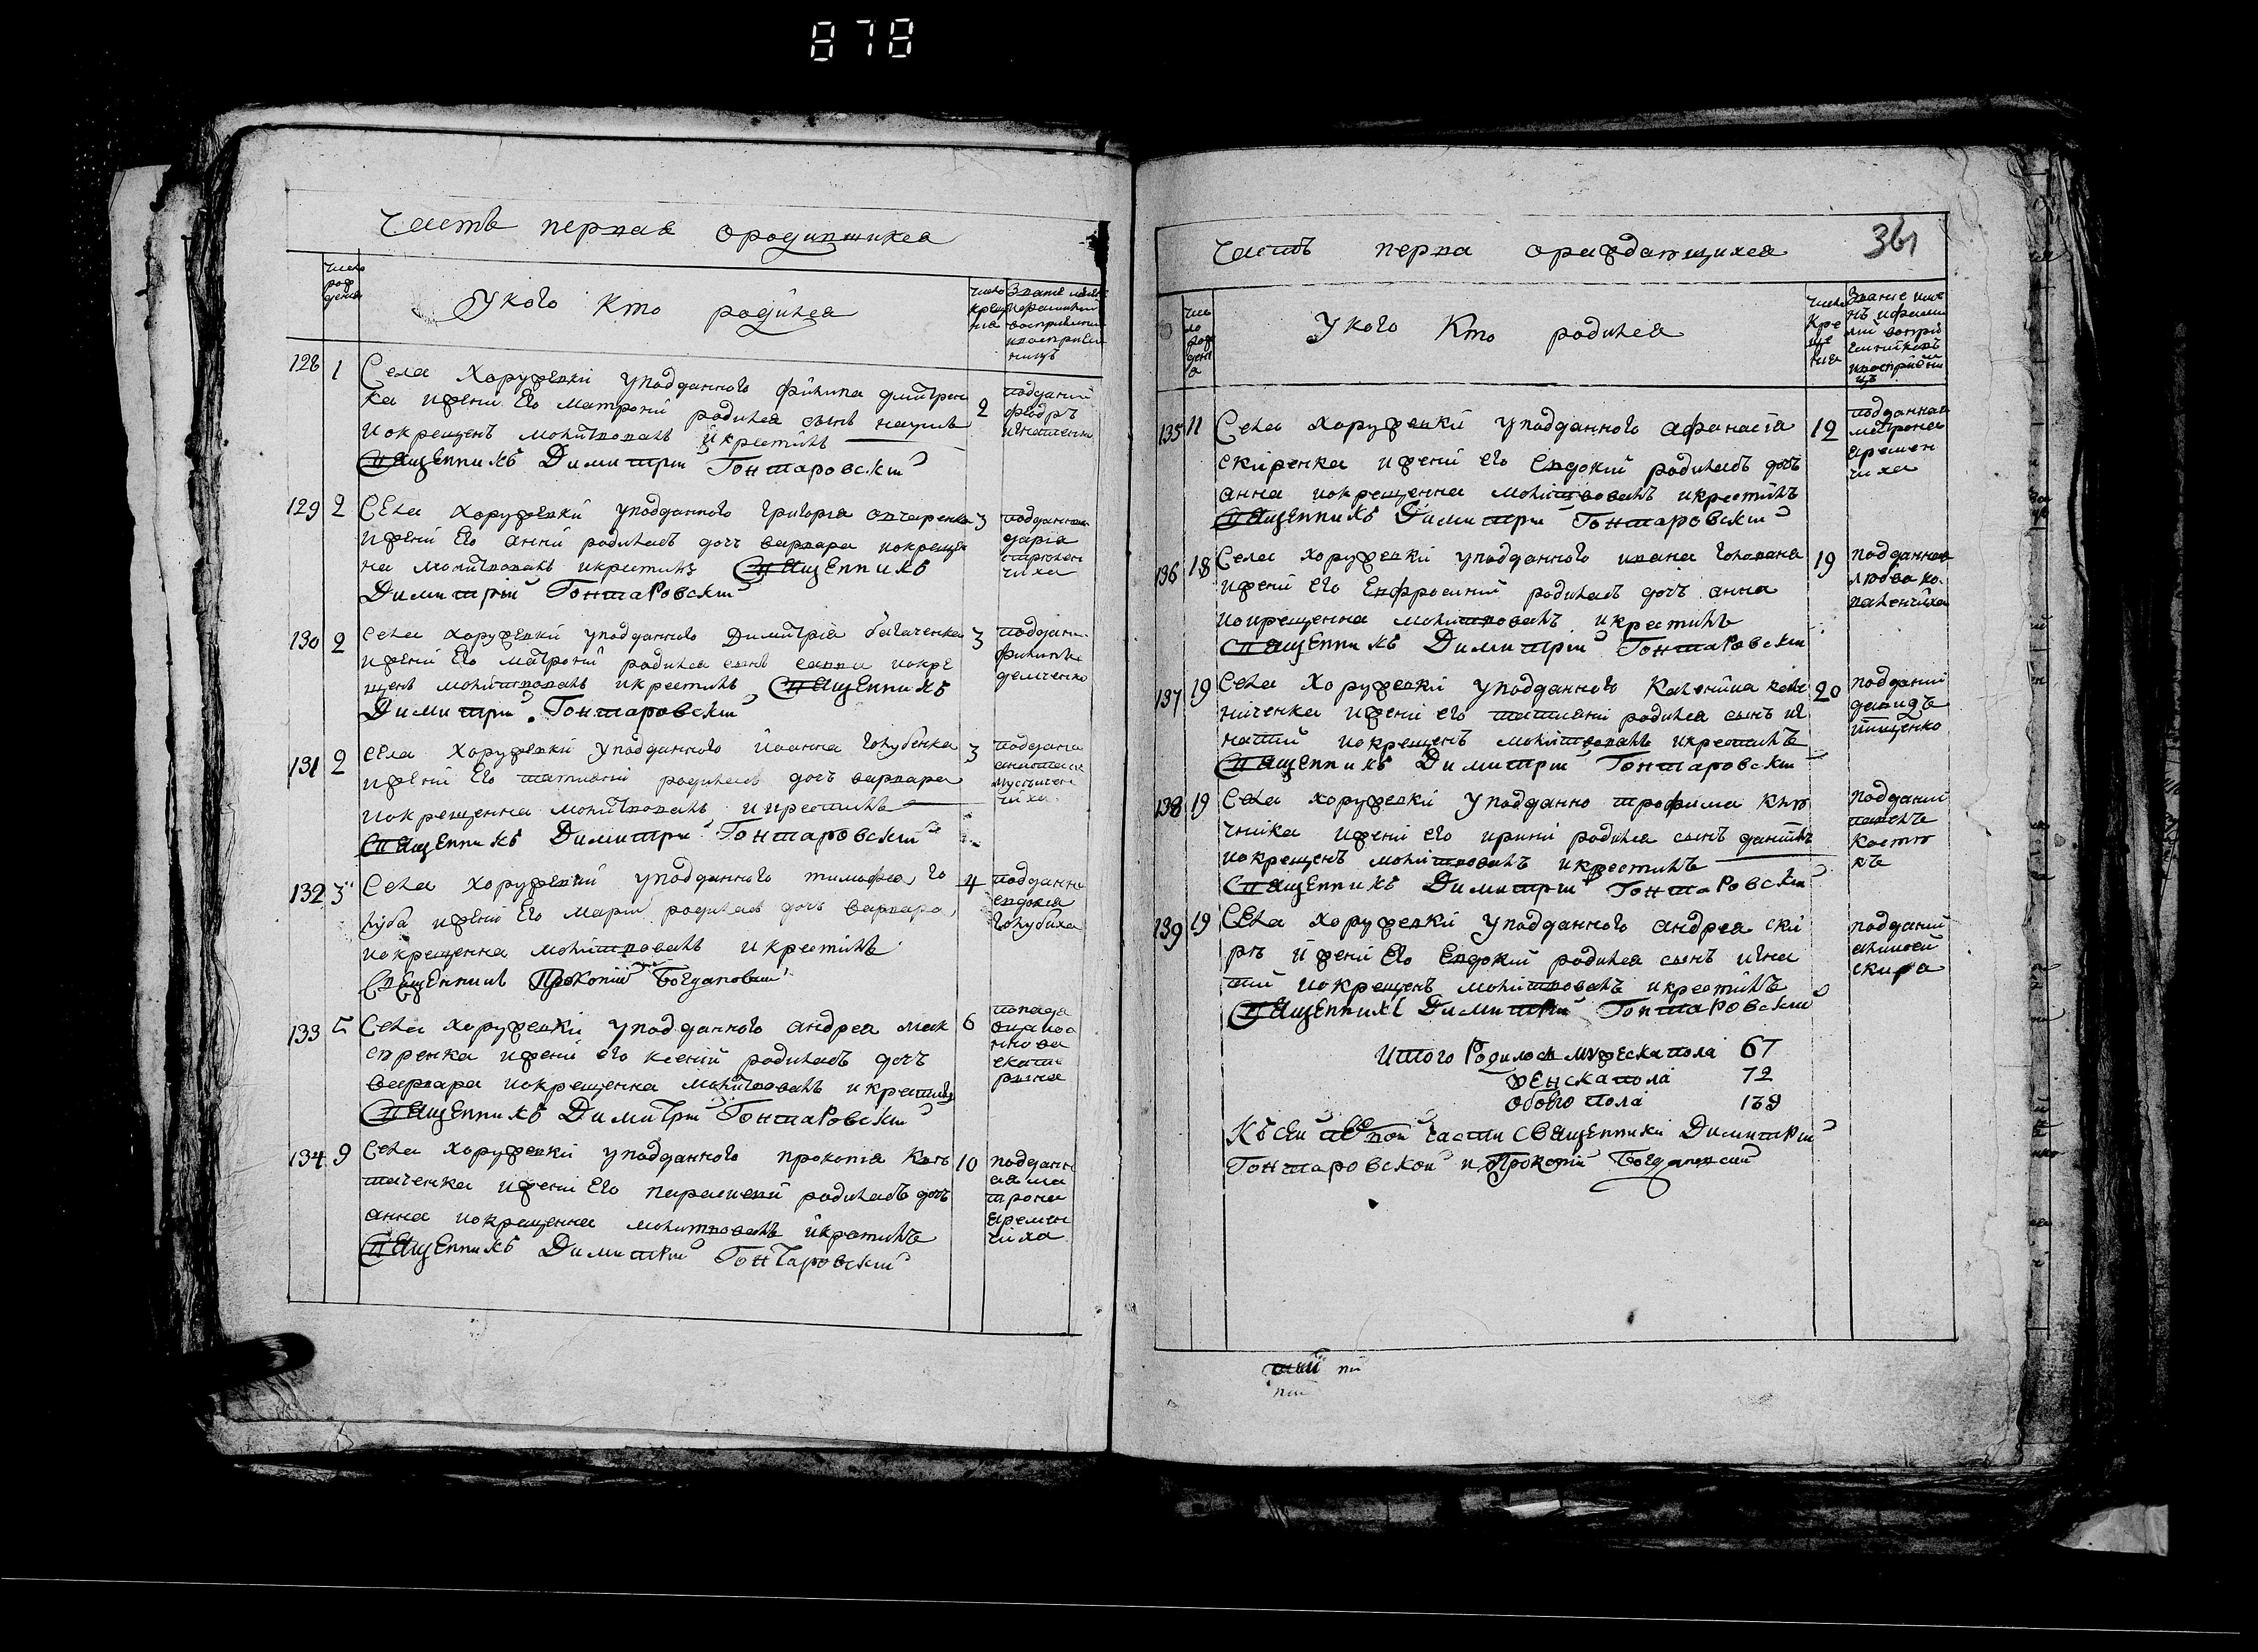 878
Часть первая ородившихся
Число рождения
У кого кто родился
Число крещения
128 1 Села Хоружевки уподданного филипа дмитрен
ка ижени его матрони родился сынъ наумъ 2
икрещенъ молитвовалъ икрестилъ
Священникъ Димитрий Гонтаровский
подданий
федоръ
129 2 Села хоружевки уподданного григория овчаренка 3
ижени его анни родиласъ дочъ варвара икреще
на молитвовалъ икрестилъ Священникъ
Димитрий Гонтаровский
подданная
дария
чиха
130 2 села хоружевки уподданного Димитрия багаченка 3
ижени его матрони родился синъ савва икре
щенъ молитвовалъ икрестилъ Священникъ
Димитрий Гонтаровский
поддани
филипъ
демченко
131 2 села хоружевки уподданного иоанна голубенка 3
ижени его татияни родиласъ дочъ варвара
икрещенна молитвовалъ икрестилъ
Священникъ Димитрий Гонтаровский
поддана
чиха
132 3 Села хоружевки уподданного тимофея го 4
луба ижени его марии родиласъ дочъ варвара
икрещенна молитвовалъ икрестилъ
Священникъ Прокопий Богдановский
подданна
евдокия
голубиха
133 5 Села хоружевки уподданного андрея мак 6
сиренка ижени его ксении родиласъ дочъ
варвара икрещенна молитвовалъ икрестилъ
Священникъ Димитрий Гонтаровский
попадя
екате
рина
134 9 Села хоружевки уподданного прокопия кол 10
таченка ижени его параскеви родиласъ дочъ
анна икрещенна молитвовалъ икрестилъ
Священникъ Димитрий Гончаровский
подданн
ая ма
трона
яремен
чиха
361
Часть перва ораждающихся
Число рождения
У кого кто родился
Число крещения
135 11 Села хоружевки уподданного афанасия 12
скиренка ижени его евдокии родиласъ дочъ
анна икрещенна молитвовалъ икрестилъ
Священникъ Димитрий Гонтаровский
подданная
матрона
яремен
чиха
136 18 Села хоружевки уподданного ивана голована 19
ижени его Ефросинии родиласъ дочъ анна
икрещенна молитвовалъ икрестилъ
Священникъ Димитрий Гонтаровский
подданная
любва ко
валенчиха
137 19 Села Хоружевки уподданного Каленика кале 20
ниченка ижени его татияни родился сынъ иг
натий икрещенъ молитвовалъ икрестилъ
Священникъ Димитрий Гонтаровский
подданий
давидъ
ищенко
138 19 Села хоружевки уподданно трофима клю
чника ижени его ирини родился сынъ данилъ
икрещенъ молитвовалъ икрестилъ
Священникъ Димитрий Гонтаровский
подданий
павелъ
костю
къ
139 19 Села хоружевки уподданного андрея ски
ръ ижени его Евдокии родился сынъ игна
тий икрещенъ молитвовалъ икрестилъ
Священникъ Димитрий Гонтаровский
подданий
аликсей
скира
Итого Родилося мужеска пола 67
женска пола 72
обоего пола 139
Къ сей первой части Священники Димитрий
Гонтаровской и Прокопий Богдановский